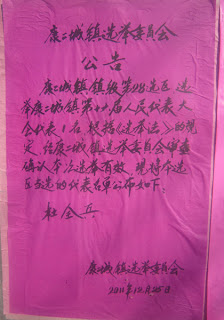 康二城镇选举委员会
公告
康二城镇镇级第98选区，选
举康二城镇第十六届人民代表大
会代表1名，根据《选举法》的规
定，经康二城镇选举委员会审查
确认本次选举有效，现将本选
区当选的代表名单公布如下：
杜全兵
康二城镇选举委员会
2011年12月25日